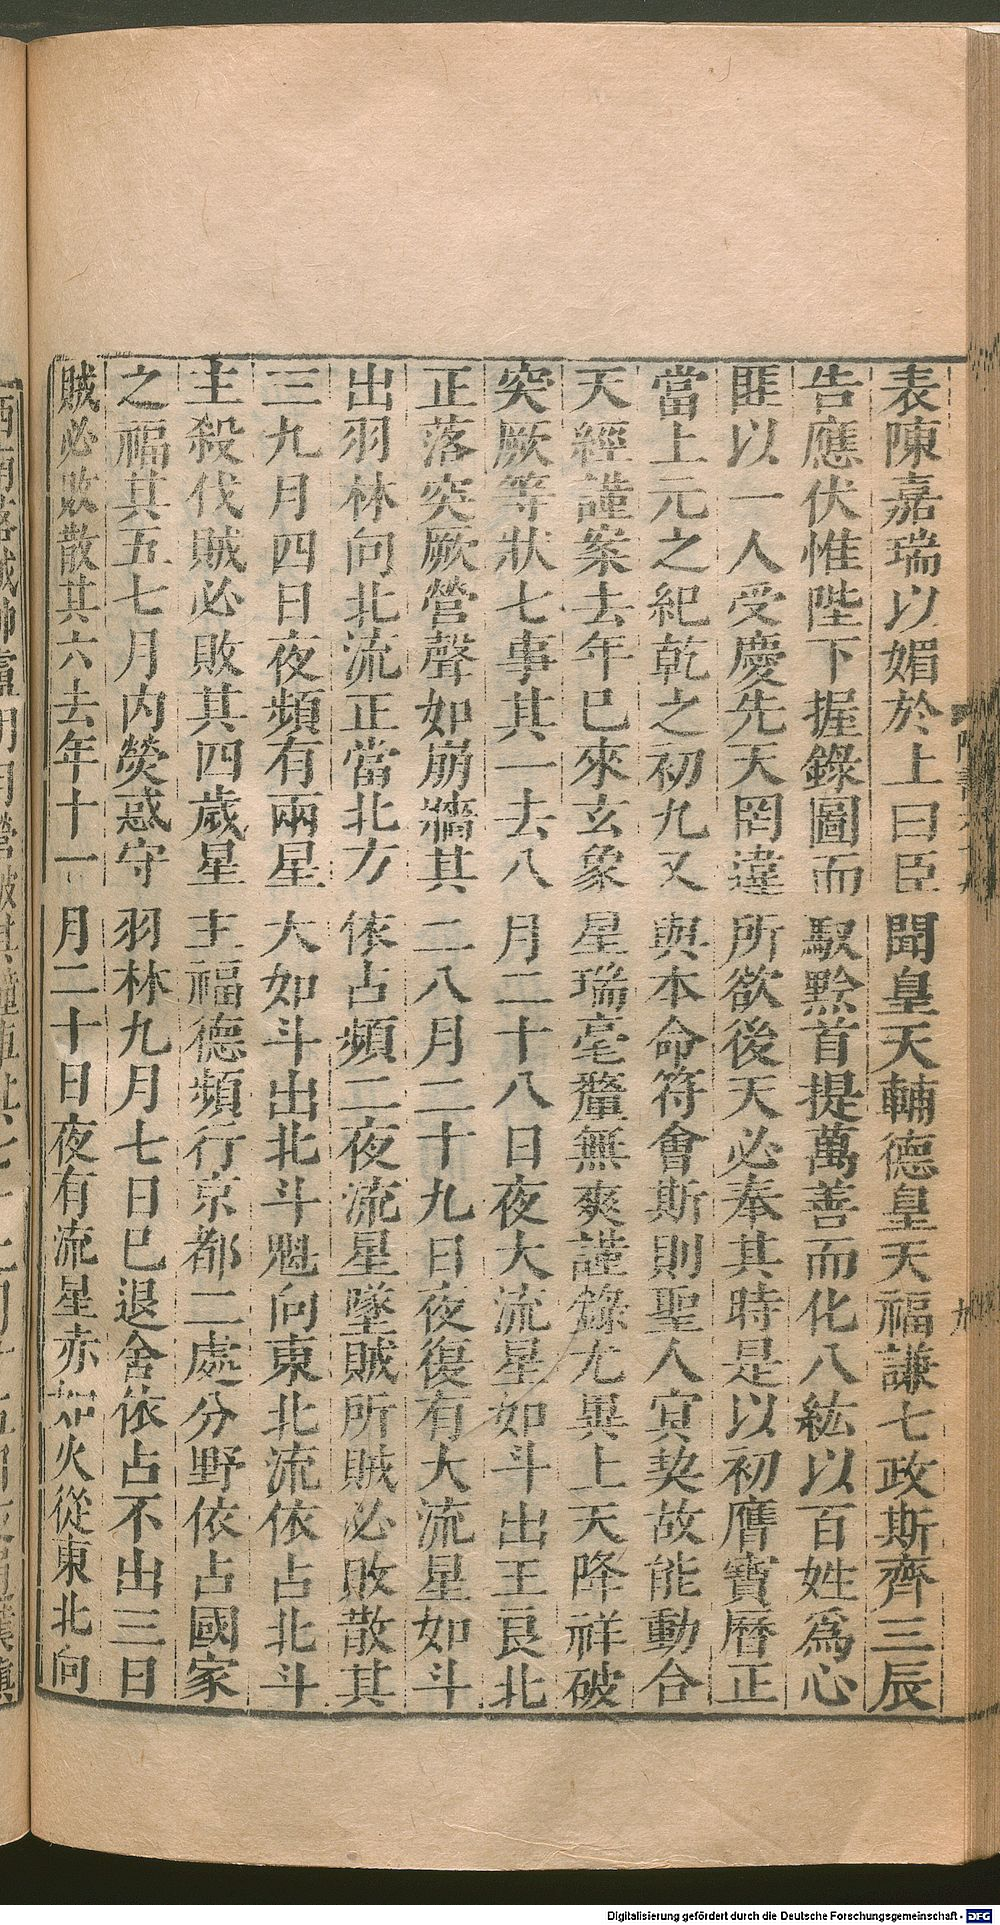 表陳嘉瑞以媚於上曰臣聞皇天輔德皇天福謙七政斯齊三辰
告應伏惟陛下握錄圖而馭黔首提萬善而化八紘以百姓爲心
匪以一人受慶先天罔違所欲後天必奉其時是以初膺寶曆正
當上元之紀乾之初九又與本命符會斯則聖人冥契故能動合
天經謹案去年已來玄象星瑞毫釐無爽謹錄尤異上天降祥破
突厥等狀七事其一去八月二十八日夜大流星如斗出王良北
正落突厥營聲如崩牆其二八月二十九日夜復有大流星如斗
出羽林向北流正當北方依占頻二夜流星墜賊所賊必敗散其
三九月四日夜頻有兩星大如斗出北斗魁向東北流依占北斗
主殺伐賊必敗其四歲星主福德頻行京都二處分野依占國家
之福其五七月内熒惑守羽林九月七日已退舍依占不出三日
賊必敗散其六去年十一月二十日夜有流星赤如火從東北向
九
Digitalisierung gefördert durch die Deutsche Forschungsgemeinschaft - DFG